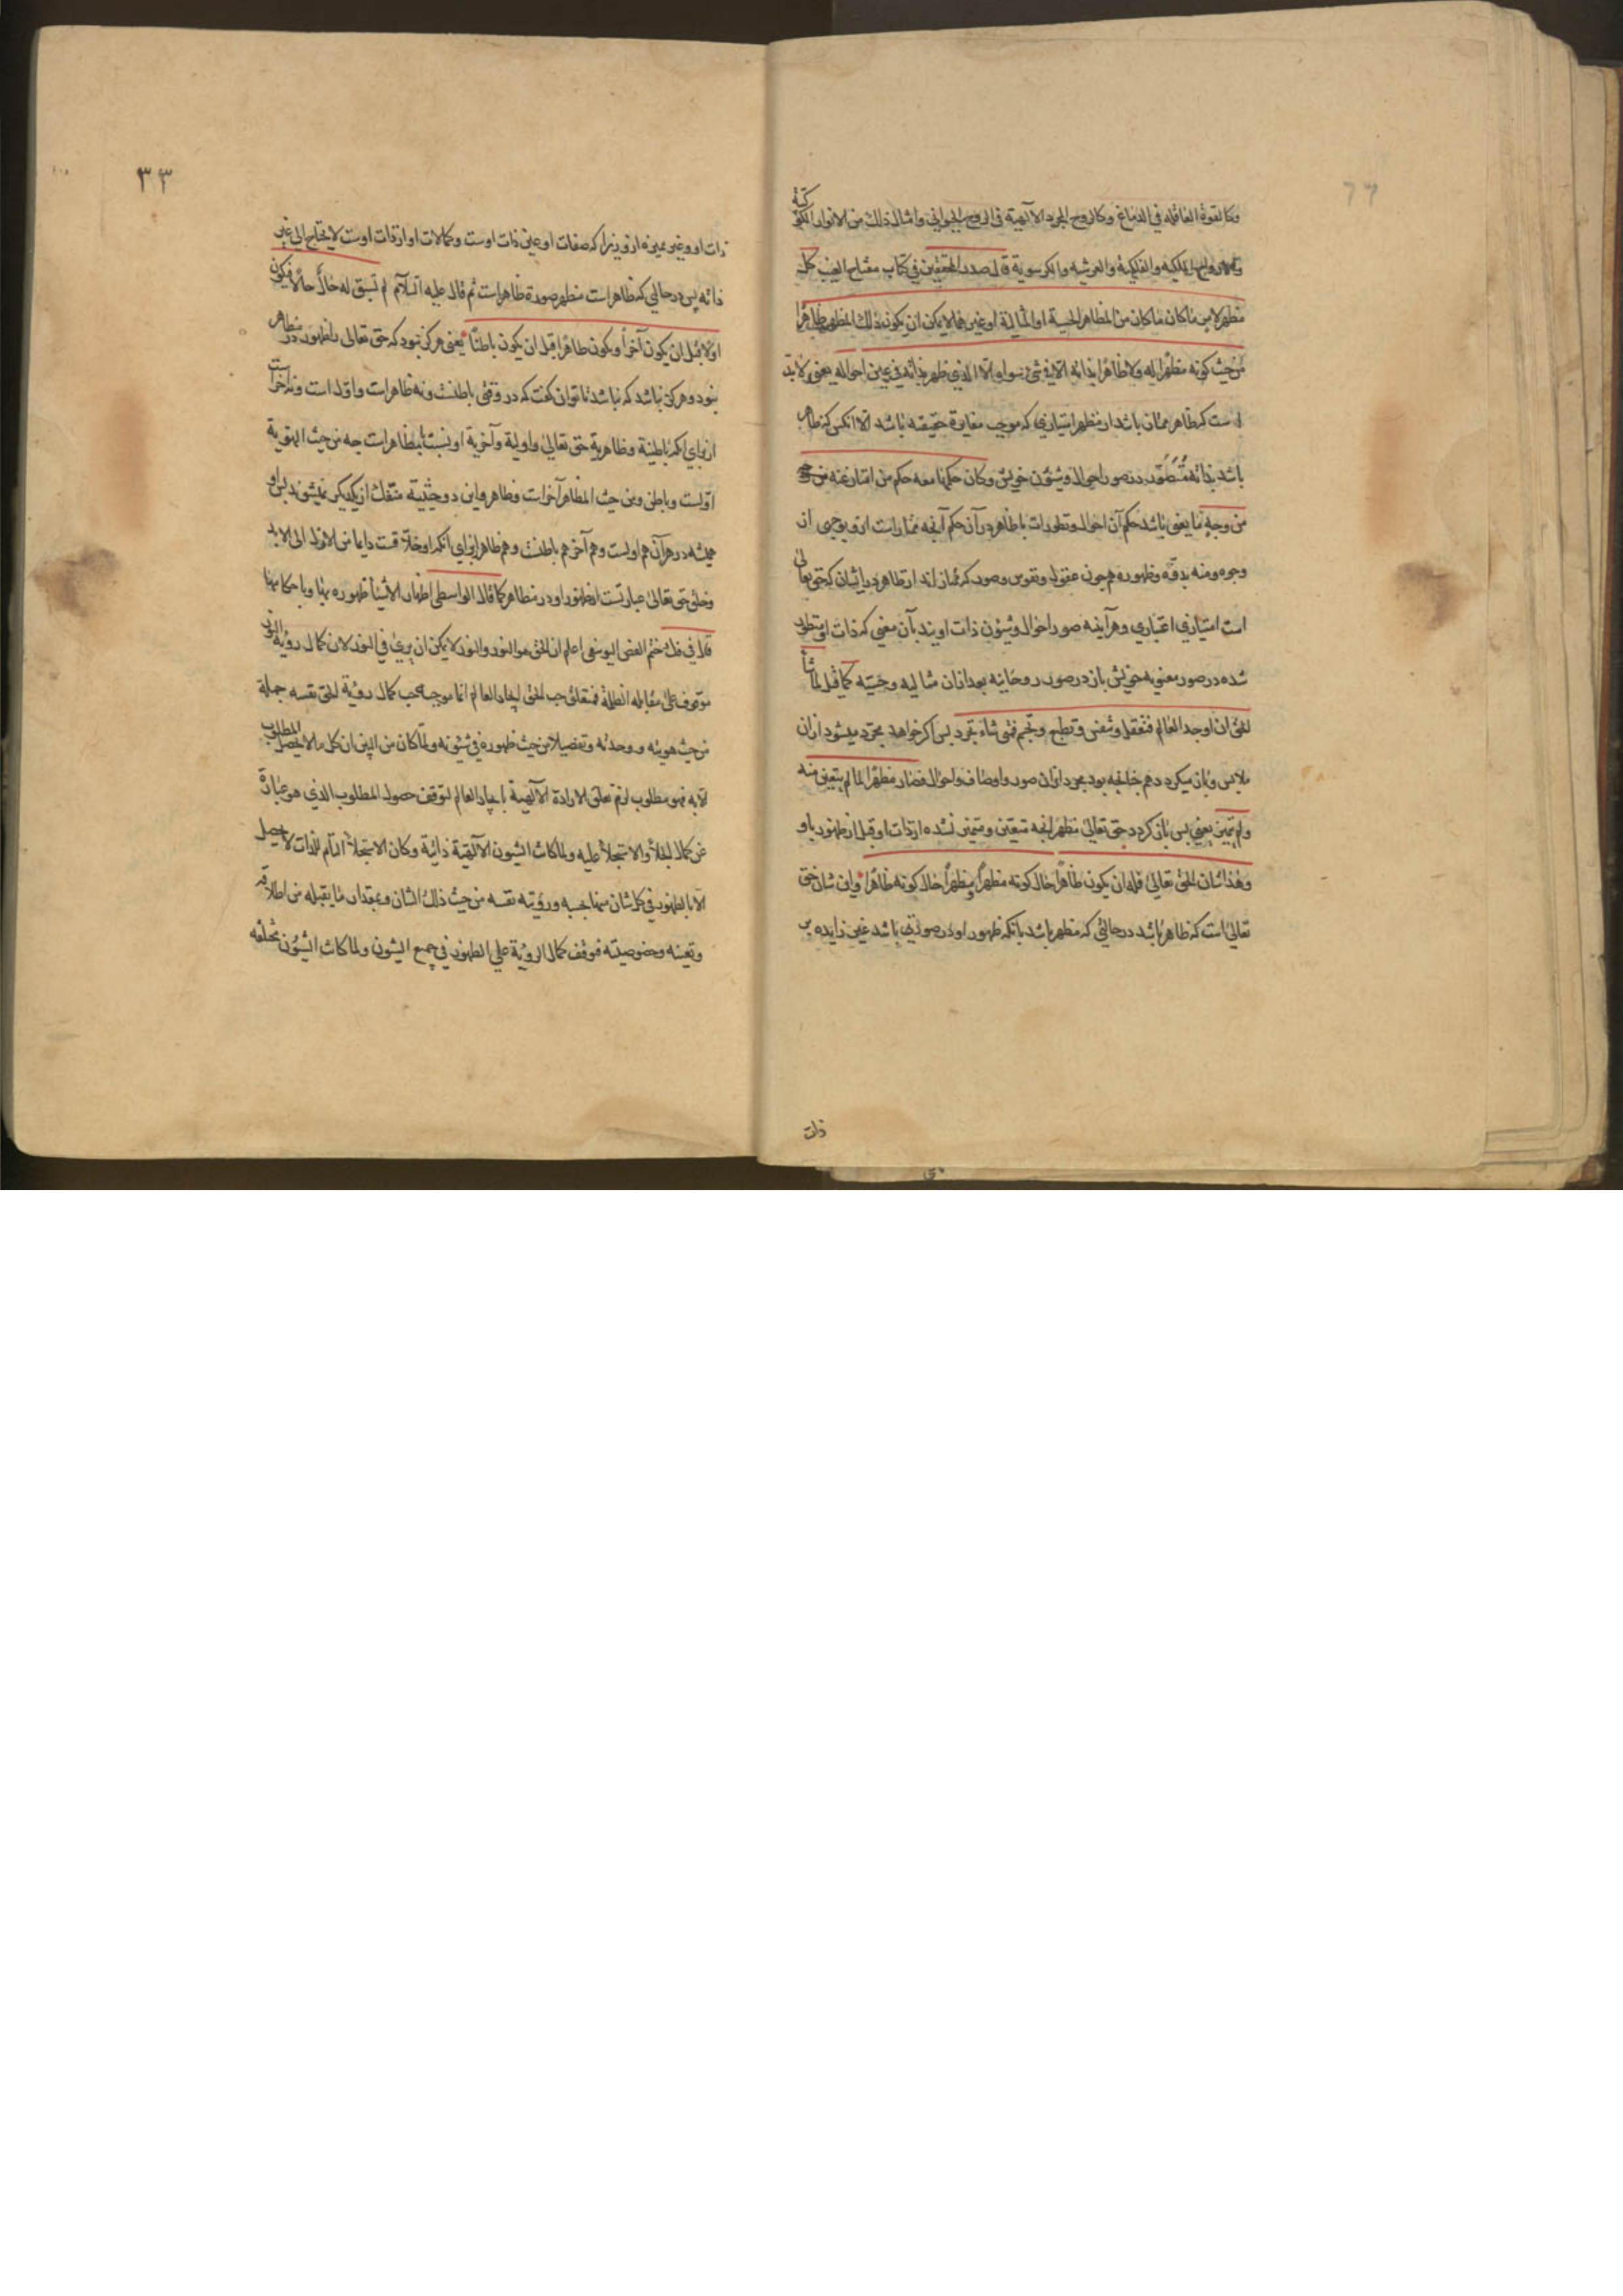 وكالقوة العاقله في الدماغ وكالروح المجرد الآلهية في الروح الحيواني وامثال ذلك من الانوار الكو
كبية
والارواح الملكيه والفلكية والعرشيه والكرسوية قال صدر المحققين في كتاب مفتاح الغيب كل
مظهر لامر ما كان ما كان من المظاهر الحسية او المثالية او غيرهما لا يمكن ان يكون ذلك المظهر ظاهرا
من حيث كونه مظهرا له ولا ظاهرا بذاته الا في شئ سواه الا الذي ظهر بذاته في عين احواله يعني لابد
است كه ظاهر ممتاز باشد از مظهر امتيازي كه موجب مغايرة حقيقيه باشد الا آنكس كه ظاهر
باشد بذاته متطور در صور احوال و شئون خويش وكان حكمها معه حكم من امتاز عنه من
من وجه ما يعني باشد حكم آن احوال و تطورات با ظاهر در آن حكم آنچه ممتاز است ازو بوجهي از
وجوه ومنه بدقه وظهوره همچون عقول و نفوس و صور كه ممتازاند از ظاهر در ايشان كه حق تعالى
است امتيازي اعتباري وهر آينه صور احوال و شئون ذات اويند بآن معني كه ذات او متطور
شده در صور معنويه خويش باز در صور روحانيه بعد از آن مثاليه و حسيه كما قيل لما شأ
الحق ان اوجد العالم فتعقل وتنفس وتطبع وتجسم فمتى شاء تجرد پس اگر خواهد مجرد ميشود از آن
ملابس و باز ميگردد هم چنانچه بود مجرد از آن صور و اوصاف و احوال فصار مظهرا لما لم يتعين منه
ولم يتميز يعني پس باز گردد حق تعالى مظهر آنچه متعين و متميز نشده از ذات او قبل از ظهور باو
وهذا شان الحق تعالى فله ان يكون ظاهرا حال كونه مظهرا ومظهرا حال كونه ظاهرا واين شان حق
تعالى است كه ظاهر باشد در حالتي كه مظهر باشد بآنكه ظهور او در صورتي باشد غير زايده بر
ذات
٣٣
ذات او و غير مميزه ازو زيرا كه صفات او عين ذات اوست و كمالات او از ذات اوست لا يحتاج الى غير
ذاته پس در حالي كه ظاهر است مظهر صورة ظاهر است ثم قال عليه السلام لم تسبق له حال حالا فيكون
اولا قبل ان يكون آخرا ويكون ظاهرا قبل ان يكون باطنا يعني هرگز نبود كه حق تعالى را ظهور در مظاهر
نبود و هرگز نباشد كه نباشد تا توان گفت كه در وقتي باطنست و نه ظاهر است و اول است و نه آخر است
از براي آنكه باطنية و ظاهرية حق تعالى و اولية و آخرية او نسبت بمظاهر است چه من حيث الهوية
اولست و باطن و من حيث المظاهر آخر است و ظاهر و اين دو حيثيه منفك از يكديگر نميشوند پس او
هميشه در هر آن هم اولست و هم آخر هم باطنست و هم ظاهر از براي آنكه او خلاقست دايما من الازل الى الابد
وخلق حق تعالى عبارتست از ظهور او در مظاهر كما قال الواسطي اظهار الاشيأ ظهوره بها وباحكامها
قال في فك ختم الفص اليوسفي اعلم ان الحق هو النور والنور لا يمكن ان يرى في النور لان كمال رؤية النور
موقوف على مقابله الظلمة فمتعلق حب الحق ايجاد العالم انما موجبه حب كمال رؤية الحق نفسه جملة
من حيث هويته و وحدته وتفصيلا من حيث ظهوره في شئونه ولما كان من البين ان كل ما لا يحصل المطلوب
الا به فهو مطلوب لزم تعلق الارادة الآلهية بايجاد العالم لتوقف حصول المطلوب الذي هو عبارة
عن كمال الجلأ والاستجلأ عليه ولما كانت الشيون الآلهية ذاتية وكان الاستجلأ التام للذات لا يحصل
الا بالظهور في كل شان منها بحسبه ورؤيته نفسه من حيث ذلك الشان وبمقدار ما يقبله من اطلاقه
وتعينه وخصوصيته فتوقف كمال الرؤية على الظهور في جميع الشيون ولما كانت الشيون مختلفه